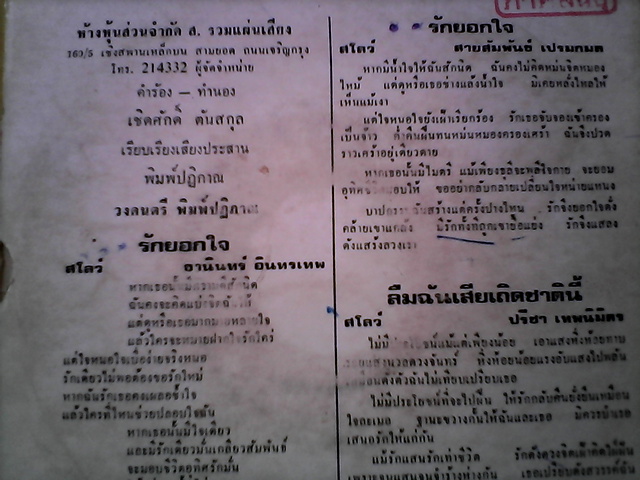 ห้างหุ้นส่วนจำกัด ส. รวมแผ่นเสียง
163/5 เชิงสพานเหล็กบน สามยอด ถนนเจริญกรุง
โทร. 214332 ผู้จัดจำหน่าย
คำร้อง — ทำนอง
เชิดศักดิ์ ตันสกุล
เรียบเรียงเสียงประสาน
พิมพ์ปฏิภาณ
วงดนตรี พิมพ์ปฏิภาณ
รักยอกใจ
สโลว์ ธานินทร์ อินทรเทพ
หากเธอนั้นมี
ฉันคงจะคิด
แต่ดูหรือเธอมากมายหลายใจ
แล้วใครจะหมายฝากใจรักใคร่
แต่ใจหนอใจเบื่อง่ายจริงหนอ
รักเดียวไม่พอต้องขอรักใหม่
หากฉันรักเธอคงเผลอช้ำใจ
แล้วใครที่ไหนช่วยปลอบใจฉัน
หากเธอนั้นมีใจเดียว
และมีรักเดียวมั่นเกลียวสัมพันธ์
จะมอบชีวิตอุทิศรักมั่น
รักยอกใจ
สโลว์ สายสัมพันธ์ เปรมกมล
หากมีน้ำใจให้ฉันสักนิด ฉันคงไม่คิดหม่นจิตหมอง
ไหม้ แต่ดูหรือเธอช่างแล้งน้ำใจ มิเคยหลั่งไหลให้
เห็นแม้เงา
แต่ใจหนอใจยังเฝ้าเรียกร้อง รักเธอจับจองเข้าครอง
เป็นเจ้า ค่ำคืนฝืนทนหม่นหมองครองเศร้า ฉันจึงปวด
ราวเศร้าอยู่เดียวดาย
หากเธอนั้นมีไมตรี แม้เพียงธุลีจะพลีใจกาย จะยอม
อุทิศชีวิตมอบให้ ขออย่ากลับกลายเปลี่ยนใจหน่ายแหนง
บาป สร้างแต่ครั้งปางไหน รักจึงยอกใจดั่ง
คล้ายเขาแกล้ง มีรักทั้งทีถูกเขายื้อแย่ง รักจึงแสลง
ดังแสร้งลวงเรา
ลืมฉันเสียเถิดชาตินี้
สโลว์ ปรีชา เทพนิมิตร
ไม่มี แม้แต่เพียงน้อย เอาแสงหิ่งห้อยทาบ
แสนนวลดวงจันทร์ หิ่งห้อยน้อยแรงอับแสงไปพลัน
ดังตัวฉันไม่เทียบเปรียบเธอ
ไม่มีประโยชน์ที่จะไปฝืน ให้รักกลับคืนยั่งยืนเหมือน
ใจละเมอ ฐานะขวางกั้นให้ฉันและเธอ มิควรบำเรอ
เสนอรักให้แก่กัน
แม้รักแสนรักเท่าชีวิต รักดังดวงจิตเฝ้าคิดใฝ่ฝัน